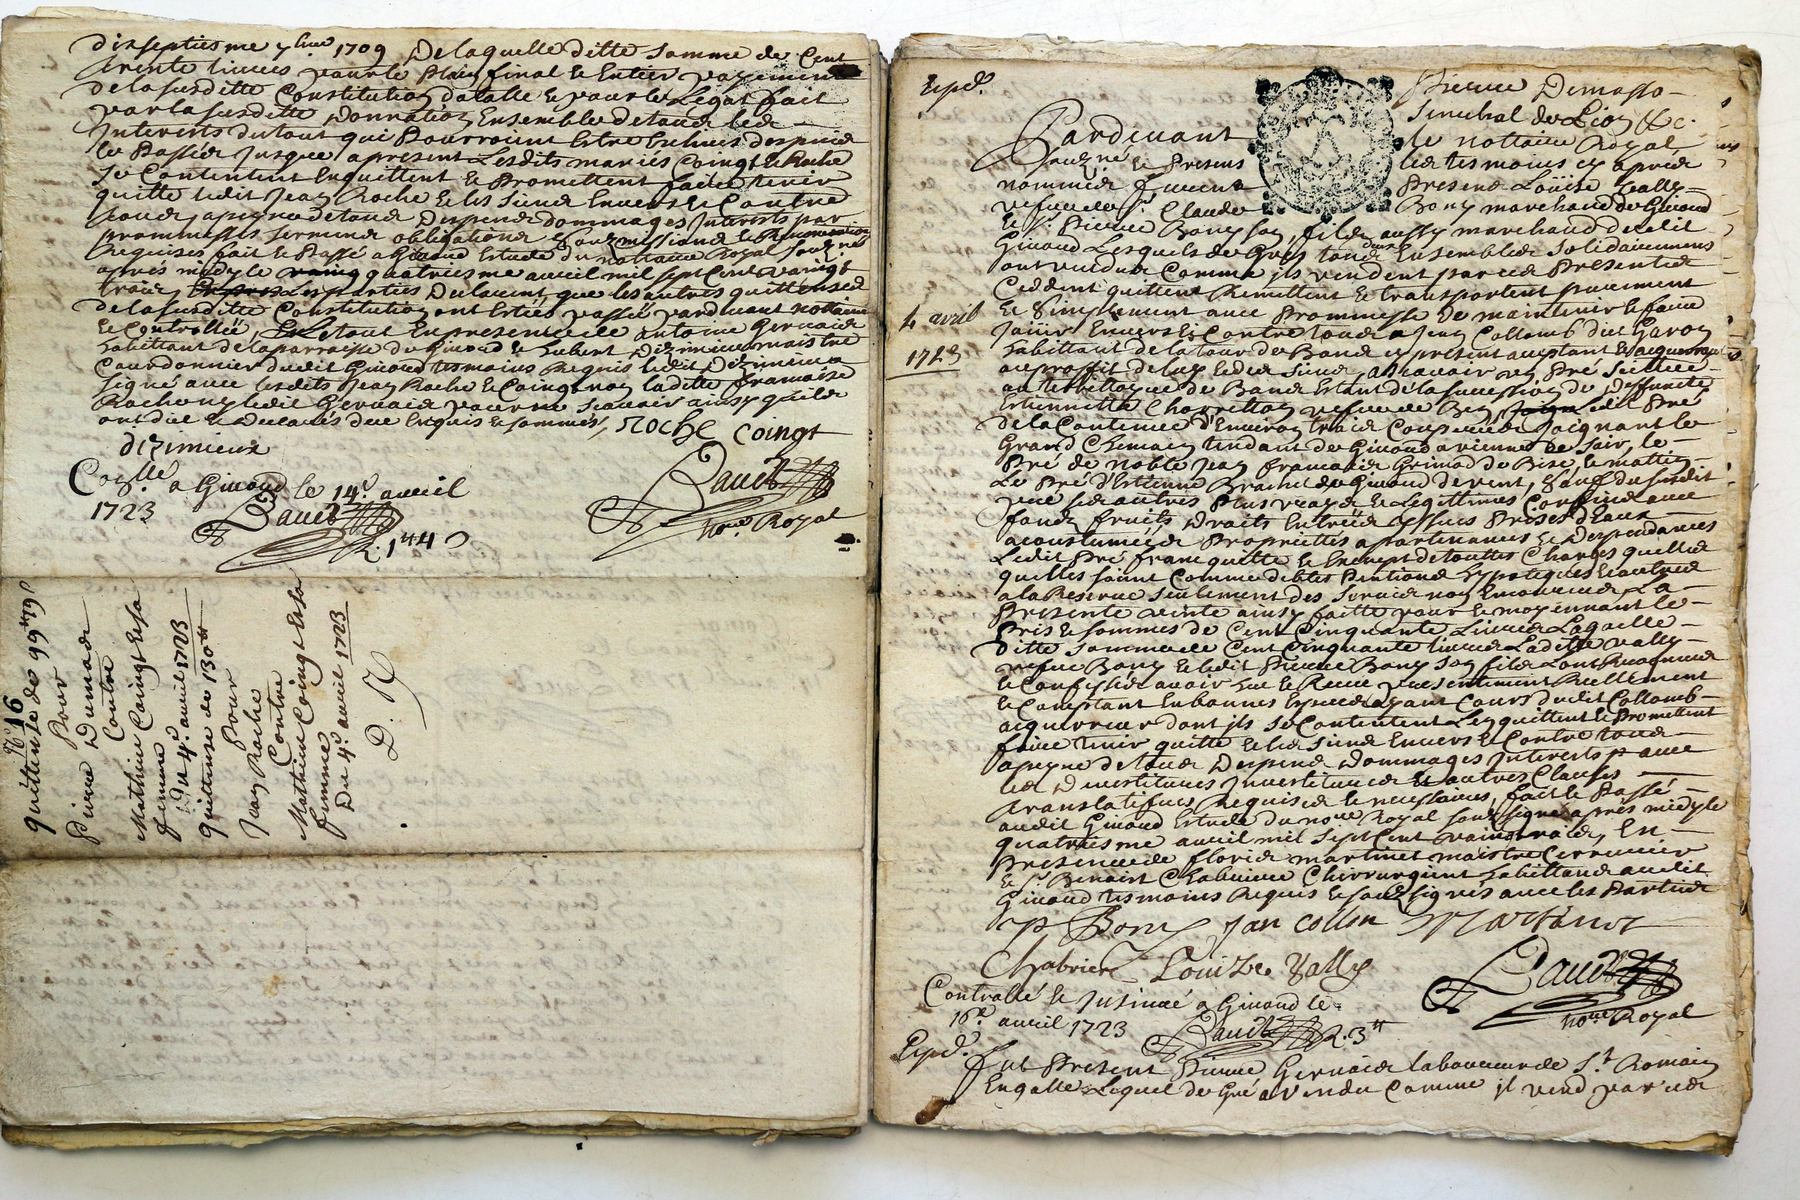 dixseptiesme 7bre 1709 De laquelle ditte somme de Cent
trente livres pour le plain final et Entier payement
de la susditte Constitution dotalle et pour le Legat fait
par la susditte Donnation Ensemble de tous les
Interests du tout qui Pourroient Estre Escheus
le Passé Jusque a present Lesdits mariés Coingt et Roche
se Contentent Enquittent et Promettent faire tenir
quitte ledit Jean Roche et les siens Envers et Contre
tous, a peyne de tous Despens dommages Interests par
promesses serment obligations soubmissions et Renonciations
Requises fait et Passé a Givord Estude du nottaire Royal soubzné
apres midy le quatriesme avril mil sept Cent vaingt
trois, Les parties Declarent, que les autres quittances
de la susditte Constitution ont Estées passées pardevant nottaire
et Controllées, Le tout En presence de Antoine Gervais
habittant de la parroisse de Givord et hubert Dizimieux maistre
Courdonnier dudit Givord tesmoins Requis ledit Dizimieux a
signé avec lesdits Jean Roche et Coingt non laditte françoise
Roche ny ledit Gervais pour ne scavoir ainsy quils
ont dit et Declarés de ce Enquis et sommés, Roche Coingt
dizimieux
Conllé a Givord le 14e avril
1723
R. 1tt 4 s
nore Royal
No 16
quittance de 99tt 19s
Pour
Pierre Dumas
Contre
Mathieu Coingt et sa
femme
Du 4e avril 1723
quittance de 130tt
Pour
Jean Roche
Contre
Mathieu Coingt et sa
femme
Du 4e avril 1723
D. R
Expd.
Pierre Demasso
senechal de Lion &c.
Pardevant le nottaire Royal
soubzné et Presens les tesmoins cy apres
nommés furent Presens Loüise Vally
vefve de Sr. Claude Bony marchand de Givord
et Sr. Pierre Bony son fils aussy marchand dudit
Givord Lesquels de Gres tous deux Ensemble et solidairement
ont vendus Comme ils vendent par ces Presentes
Ceddent quittent Remettent et transportent purement
et Simplement avec Promesse de maintenir et faire
4 avril
1723
Jouir Envers et Contre tous a Jean Collomb dit
habittant de la tour de Bans cy present acceptant et acquereur
au proffit de luy et des siens, a scavoir un Pré scitué
au territtoyre de Bans Estant de la succession de Deffuncte
Estiennette vefve de ledit Pré
de la Contenue d'Environ trois Coupées Joignant le
Grand Chemin tendant de Givord a vienne de soir, le
Pré de noble Jean françois Grimod de Bise, le mattin
Le Pré d'Estienne Brachet de Givord de vent, sauf du susdit
pré ses autres Plus vrays et Legittimes Confins avec
fondz fruits Droits Entrées Issues Prises d'Eaux
acoustumées Proprietés apartenances et Despendances
Ledit Pré franc quitte et Exempt de touttes Charges quelles
quelles soient Comme debtes Pentions hypoteques et autres
a la Reserve seulement des servis non Encourues La
Presente vente ainsy faitte pour et moyennant le
Pris et sommes de Cent Cinquante Livres Laquelle
ditte somme de Cent Cinquante livres Laditte Vally
vefve Bony et ledit Pierre Bony son fils L'ont Recognus
et Confessés avoir heu et Receu presentement Reellement
et Comptant En bonnes Especes ayant Cours dudit Collomb
acquereur dont ils se Contentent Lenquittent et Promettent
faire tenir quitte et les siens Envers et Contre tous
a peyne de tous Despens Dommages Interests avec
les Devestitures Investitures et autres Clauses
translatifves Requises et necessaires, fait et Passé
audit Givord Estude du nore Royal soubzsigné apres midy le
quatriesme avril mil sept Cent vaing trois, En
Presence de floris martinet maistre Cerrurier
et Sr. Benoist Chabriere Chirrurgient habittans audit
Givord tesmoins Requis et soubzsignés avec les Parties
P Bony Jan collon Martinet
Chabriere Louize Vally
nore Royal
Controllé et Insinué a Givord le
16e avril 1723
R. 3tt
Expd.
fut Present Pierre Gervais laboureur de St. Romain
En galle Lequel de Gré a vendu Comme il vend par ces